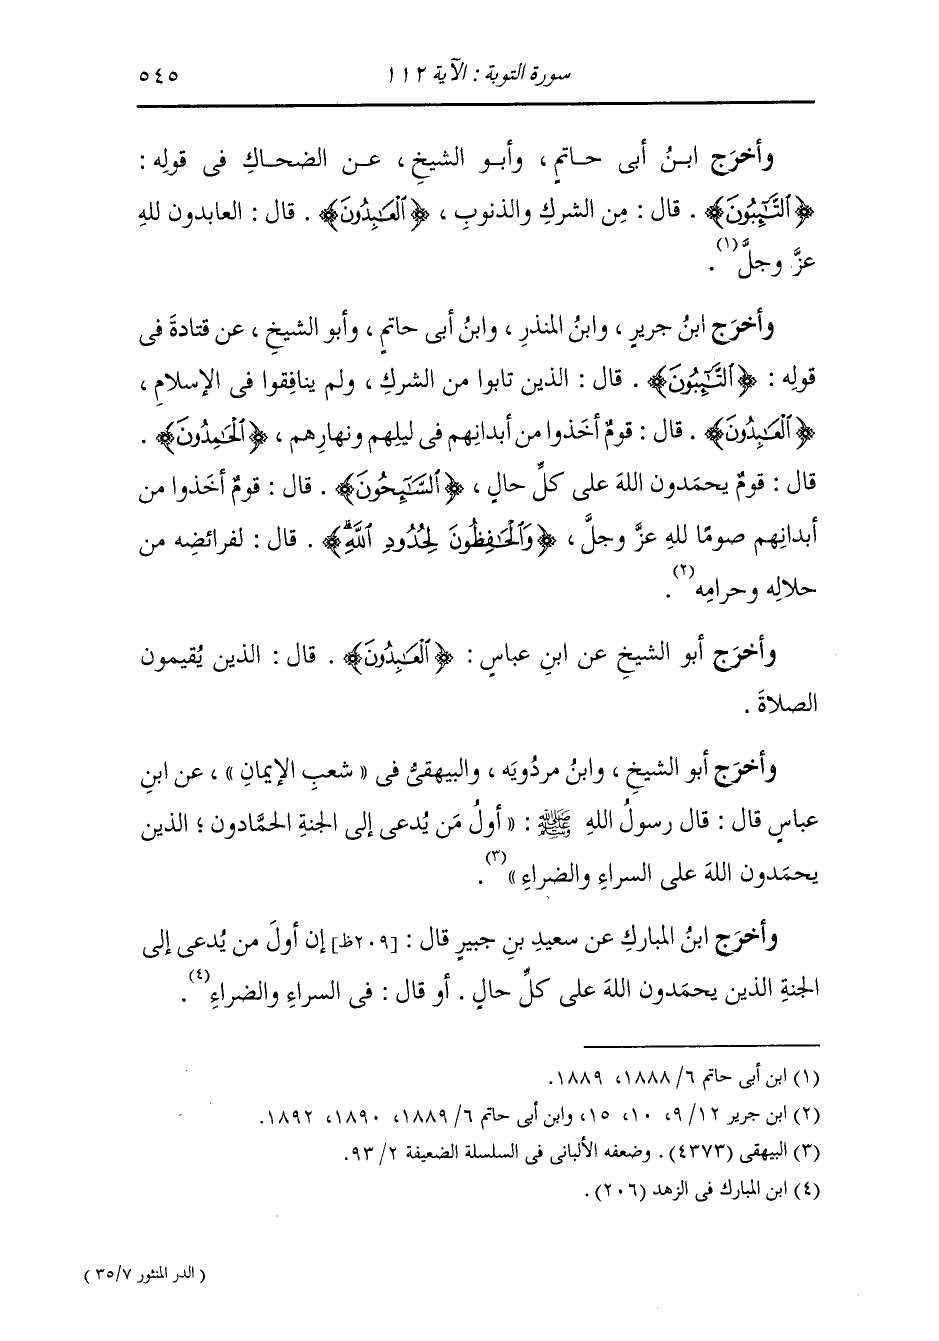 سورة التوبة : الآية ١١٢ ٥٤٥
وأخرَج ابنُ أبى حاتمٍ ، وأبو الشيخِ ، عن الضحاكِ فى قولِه :
﴿ٱلتَّـٰٓئِبُونَ﴾ . قال : مِن الشركِ والذنوبِ ، ﴿ٱلْعَـٰبِدُونَ﴾ . قال : العابدون للهِ
عزَّ وجلَّ(١) .
وأخرَج ابنُ جريرٍ ، وابنُ المنذرِ ، وابنُ أبى حاتمٍ ، وأبو الشيخِ ، عن قتادةَ فى
قولِه : ﴿ٱلتَّـٰٓئِبُونَ﴾ . قال : الذين تابوا من الشركِ ، ولم ينافِقوا فى الإسلامِ ،
﴿ٱلْعَـٰبِدُونَ﴾ . قال : قومٌ أخَذوا من أبدانِهم فى ليلِهم ونهارِهم ، ﴿ٱلْحَـٰمِدُونَ﴾ .
قال : قومٌ يحمَدون اللهَ على كلِّ حالٍ ، ﴿ٱلسَّـٰٓئِحُونَ﴾ . قال : قومٌ أخَذوا من
أبدانِهم صومًا للهِ عزَّ وجلَّ ، ﴿وَٱلْحَـٰفِظُونَ لِحُدُودِ ٱللَّهِۗ﴾ . قال : لفرائضِه من
حلالِه وحرامِه(٢) .
وأخرَج أبو الشيخِ عن ابنِ عباسٍ : ﴿ٱلْعَـٰبِدُونَ﴾ . قال : الذين يُقيمون
الصلاةَ .
وأخرَج أبو الشيخِ ، وابنُ مردُويَه ، والبيهقىُّ فى « شعبِ الإيمانِ » ، عن ابنِ
عباسٍ قال : قال رسولُ اللهِ ﷺ : « أولُ مَن يُدعى إلى الجنةِ الحمَّادون ؛ الذين
يحمَدون اللهَ على السراءِ والضراءِ »(٣) .
وأخرَج ابنُ المباركِ عن سعيدِ بنِ جبيرٍ قال : [٢٠٩ظ] إن أولَ من يُدعى إلى
الجنةِ الذين يحمَدون اللهَ على كلِّ حالٍ . أو قال : فى السراءِ والضراءِ(٤) .
(١) ابن أبى حاتم ٦/ ١٨٨٨، ١٨٨٩.
(٢) ابن جرير ١٢/ ٩، ١٠، ١٥، وابن أبى حاتم ٦/ ١٨٨٩، ١٨٩٠، ١٨٩٢.
(٣) البيهقى (٤٣٧٣) . وضعفه الألبانى فى السلسلة الضعيفة ٢/ ٩٣.
(٤) ابن المبارك فى الزهد (٢٠٦) .
( الدر المنثور ٣٥/٧ )